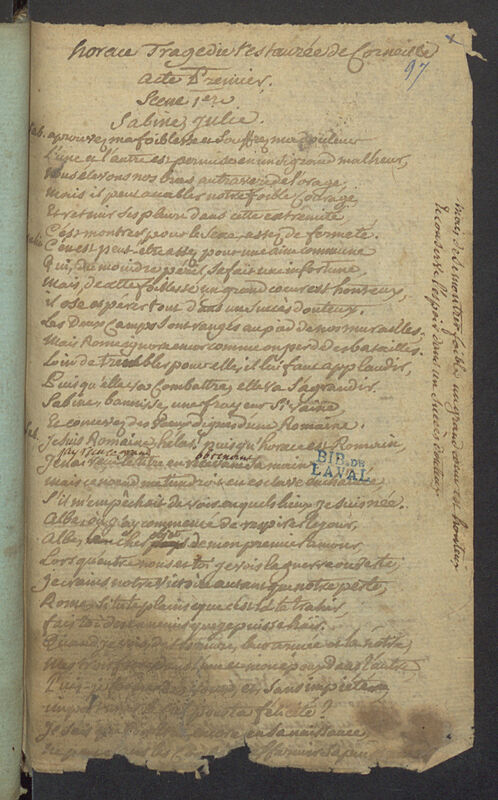 horace Tragedie restaurée de Corneille
97
acte Premier.
Scene 1ere
Sabine, Julie.
Sab. aprouvez ma foiblesse et souffrez ma douleur
L'une et l'autre est permise en un si grand malheur,
nous elevons nos bras au travers de l'orage,
mais il peut accabler notre foible Courage,
Et retenir ses pleurs dans cette extremité
C'est montrer pour le Sexe assez de fermeté.
C'en est peut-être assez pour une ame commune
Qui du moindre peril se fait une infortune,
Mais, de cette foiblesse un grand coeur est honteux,
il ose esperer tout dans un Succès douteux.
Les Deux Camps sont rangés au pied de nos murailles.
Mais Rome ignore encor comme on perd des batailles.
Loin de trembler pour elle, il lui faut applaudir,
Puisqu'elle va Combattre, elle va S'agrandir.
Sabine, bannissez une frayeur Si vaine
Et concevez des voeux dignes d'une Romaine.
Sab. Je suis Romaine helas! puisqu'horace est Romain,
J'en ai le titre en recevant sa main
obtenant
mais ce noeud me tiendroit en esclave enchaînée
S'il m'empêchait de voir en quels lieux je suis née.
Albe, où j'ai commencé de respirer le jour,
Albe, mon cher pays et mon premier amour,
Lorsqu'entre nous et toi je vois la guerre ouverte,
Je crains notre victoire autant que notre perte,
Rome, si tu te plains que c'est là te trahir,
fais toi des ennemis que je puisse haïr.
Quand je vois de tes murs, leur armée et la nôtre,
Mes trois freres dans l'une et mon epoux dans l'autre,
Puis-je former des voeux, et sans impiété
importuner le Ciel pour ta félicité?
Je sais que ton état encore en sa naissance
mais de se montrer foible un grand coeur est honteux
il conserve l'espoir dans un succès douteux
BIB. DE
LAVAL